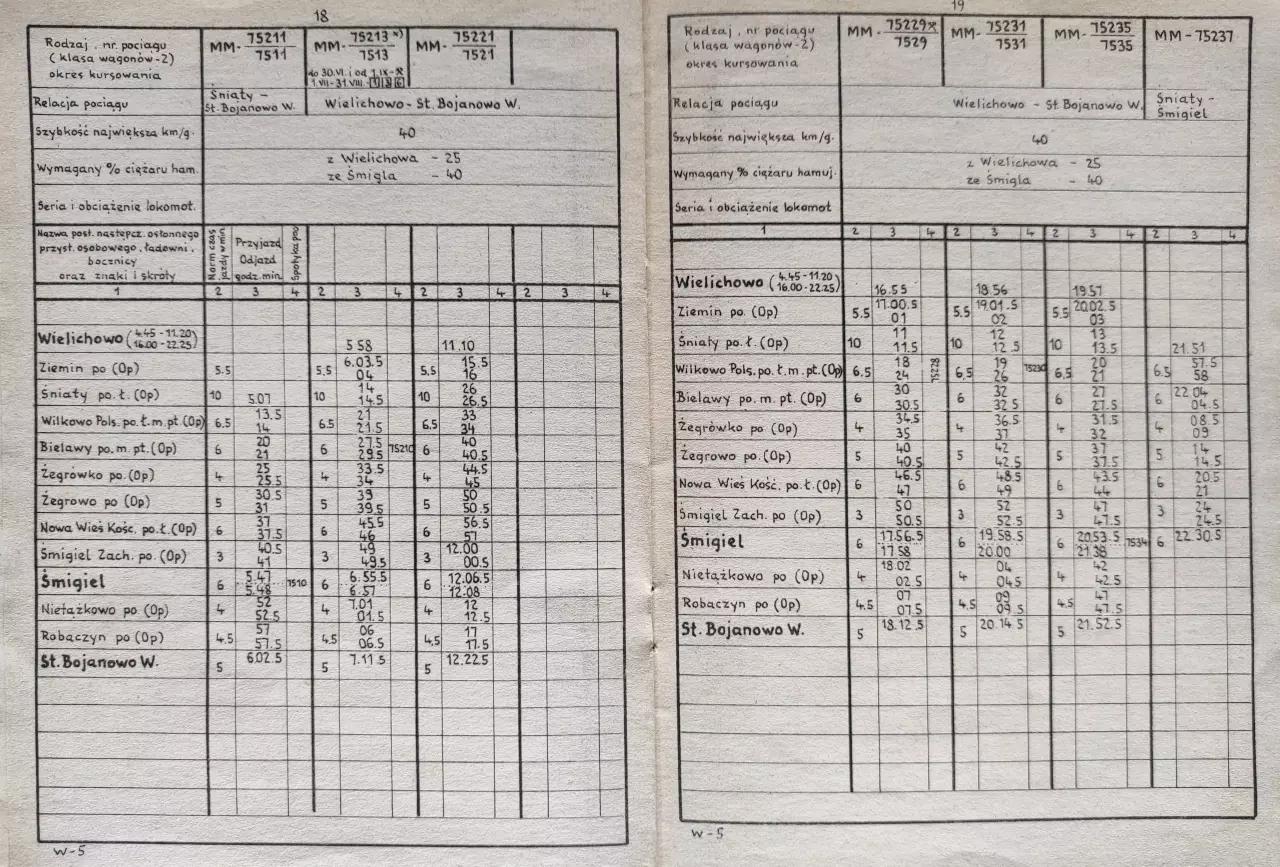 18
Rodzaj, nr. pociągu MM- 75211 / 7511 MM- 75213 x) / 7513 MM- 75221 / 7521
(klasa wagonów-2)
okres kursowania do 30.VI. i od 1.IX-
1.VII-31.VIII.
Relacja pociągu Śniaty - St. Bojanowo W. Wielichowo - St. Bojanowo W.
Szybkość największa km/g. 40
Wymagany % ciężaru ham. z Wielichowa - 25
ze Śmigla - 40
Seria i obciążenie lokomot.
Nazwa post. następcz. osłonnego
przyst. osobowego, ładowni,
bocznicy
oraz znaki i skróty
Norm czas jazdy w min
Przyjazd
Odjazd
godz. min.
1 2 3 4 2 3 4 2 3 4 2 3 4
Wielichowo (4.45-11.20) 5 58 11.10
(16.00-22.25)
Ziemin po (Op) 5.5 5.5 6.03.5 5.5 15.5
04 16
Śniaty po. ł. (Op) 10 5.07 10 14 10 26
14.5 26.5
Wilkowo Pols. po. ł. m. pt. (Op) 6.5 13.5 6.5 21 6.5 33
14 21.5 34
Bielawy po. m. pt. (Op) 6 20 6 27.5 75210 6 40
21 29.5 40.5
Żegrówko po. (Op) 4 25 4 33.5 4 44.5
25.5 34 45
Żegrowo po (Op) 5 30.5 5 39 5 50
31 39.5 50.5
Nowa Wieś Kośc. po. ł. (Op) 6 37 6 45.5 6 56.5
37.5 46 57
Śmigiel Zach. po. (Op) 3 40.5 3 49 3 12.00
41 49.5 00.5
Śmigiel 6 5.47 7510 6 6.55.5 6 12.06.5
5.48 6.57 12.08
Nietążkowo po (Op) 4 52 4 7.01 4 12
52.5 01.5 12.5
Robaczyn po (Op) 4.5 57 4.5 06 4.5 17
57.5 06.5 17.5
St. Bojanowo W. 5 6.02.5 5 7.11.5 5 12.22.5
W-5
19
Rodzaj, nr pociągu MM- 75229x / 7529 MM- 75231 / 7531 MM- 75235 / 7535 MM-75237
(klasa wagonów-2)
okres kursowania
Relacja pociągu Wielichowo - St. Bojanowo W. Śniaty - Śmigiel
Szybkość największa km/g. 40
Wymagany % ciężaru hamuj. z Wielichowa - 25
ze Śmigla - 40
Seria i obciążenie lokomot
1 2 3 4 2 3 4 2 3 4 2 3 4
Wielichowo (4.45-11.20) 16.55 18.56 19.57
(16.00-22.25)
Ziemin po. (Op) 5.5 17.00.5 5.5 19.01.5 5.5 20.02.5
01 02 03
Śniaty po. ł. (Op) 10 11 10 12 10 13
11.5 12.5 13.5 21.51
Wilkowo Pols. po. ł. m. pt. (Op) 6.5 18 75228 6.5 19 75230 6.5 20 6.5 57.5
24 26 21 58
Bielawy po. m. pt. (Op) 6 30 6 32 6 27 6 22.04
30.5 32.5 27.5 04.5
Żegrówko po (Op) 4 34.5 4 36.5 4 31.5 4 08.5
35 37 32 09
Żegrowo po. (Op) 5 40 5 42 5 37 5 14
40.5 42.5 37.5 14.5
Nowa Wieś Kość. po. ł. (Op) 6 46.5 6 48.5 6 43.5 6 20.5
47 49 44 21
Śmigiel Zach. po (Op) 3 50 3 52 3 47 3 24
50.5 52.5 47.5 24.5
Śmigiel 6 17.56.5 6 19.58.5 6 20.53.5 7534 6 22.30.5
17.58 20.00 21.38
Nietążkowo po (Op) 4 18.02 4 04 4 42
02.5 04.5 42.5
Robaczyn po (Op) 4.5 07 4.5 09 4.5 47
07.5 09.5 47.5
St. Bojanowo W. 5 18.12.5 5 20.14.5 5 21.52.5
W-5